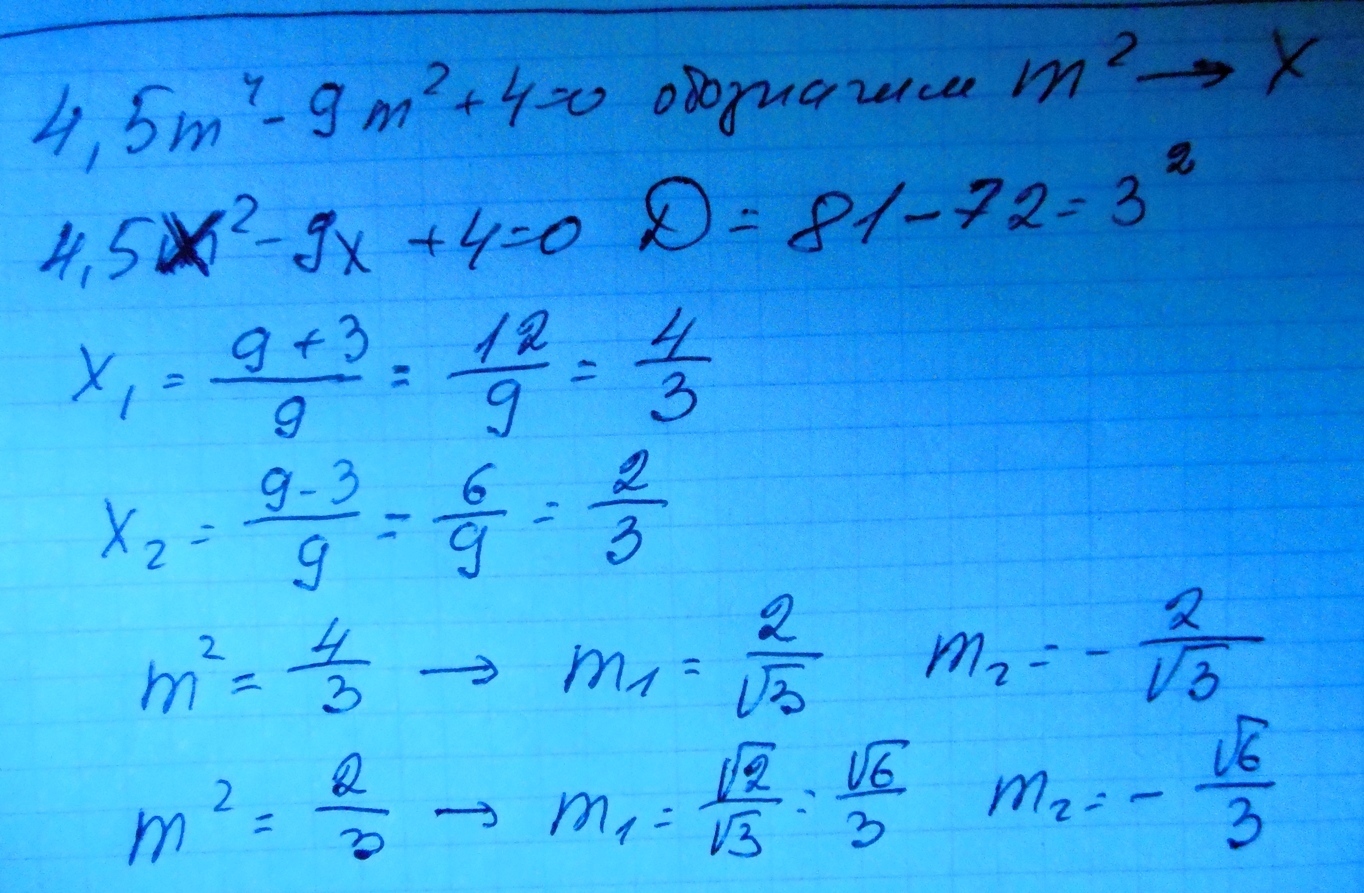 4,5m⁴ - 9m² + 4 = 0 обозначим m² → x
4,5x² - 9x + 4 = 0 D = 81 - 72 = 3²
x₁ = (9 + 3)/9 = 12/9 = 4/3
x₂ = (9 - 3)/9 = 6/9 = 2/3
m² = 4/3 → m₁ = 2/√3 m₂ = - 2/√3
m² = 2/3 → m₁ = √2/√3 = √6/3 m₂ = - √6/3